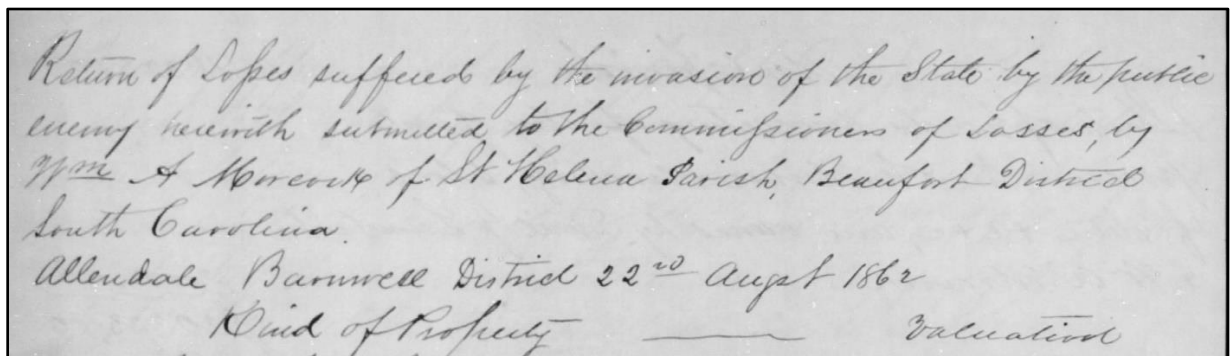 Return of Losses suffered by the invasion of the State by the public
enemy herewith submitted to the Commissioners of Losses, by
Wm A Morcock of St Helena Parish, Beaufort District
South Carolina.
Allendale Barnwell District 22nd Augst 1862
Kind of Property —— Valuation